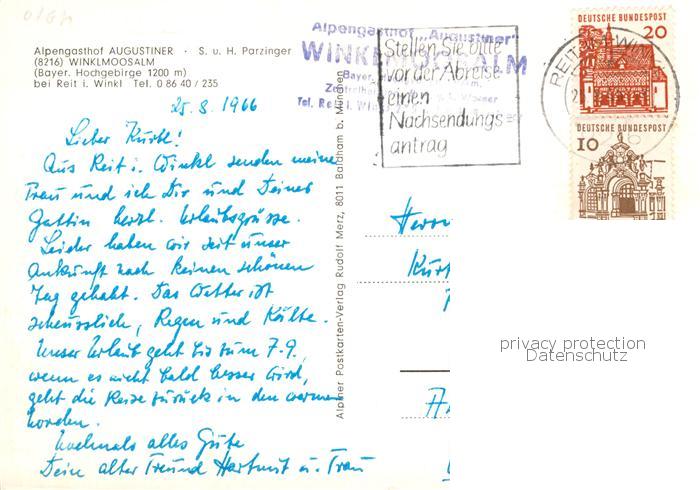 Alpengasthof AUGUSTINER · S. u. H. Parzinger
(8216) WINKLMOOSALM
(Bayer. Hochgebirge 1200 m)
bei Reit i. Winkl Tel. 0 86 40 / 235
25.8.1966
Lieber Kurtl!
Aus Reit i. Winkl senden meine
Frau und ich Dir und Deiner
Gattin herzl. Urlaubsgrüsse.
Leider haben wir seit unser
Ankunft noch keinen schönen
Tag gehabt. Das Wetter ist
scheusslich, Regen und Kälte.
Unser Urlaub geht bis zum 7.9.,
wenn es nicht bald besser wird,
geht die Reise zurück in den warmen
Norden.
Nochmals alles Gute
Dein alter Freund Hartmut u. Frau
Alpiner Postkarten-Verlag Rudolf Merz, 8011 Baldham b. München
Alpengasthof „Augustiner"
WINKLMOOSALM
Bayer.
Tel. Reit i. Wi
Stellen Sie bitte
vor der Abreise
einen
Nachsendungs=
antrag
REIT WINKL
DEUTSCHE BUNDESPOST
20
DEUTSCHE BUNDESPOST
10
Herrn
Kurt
privacy protection
Datenschutz